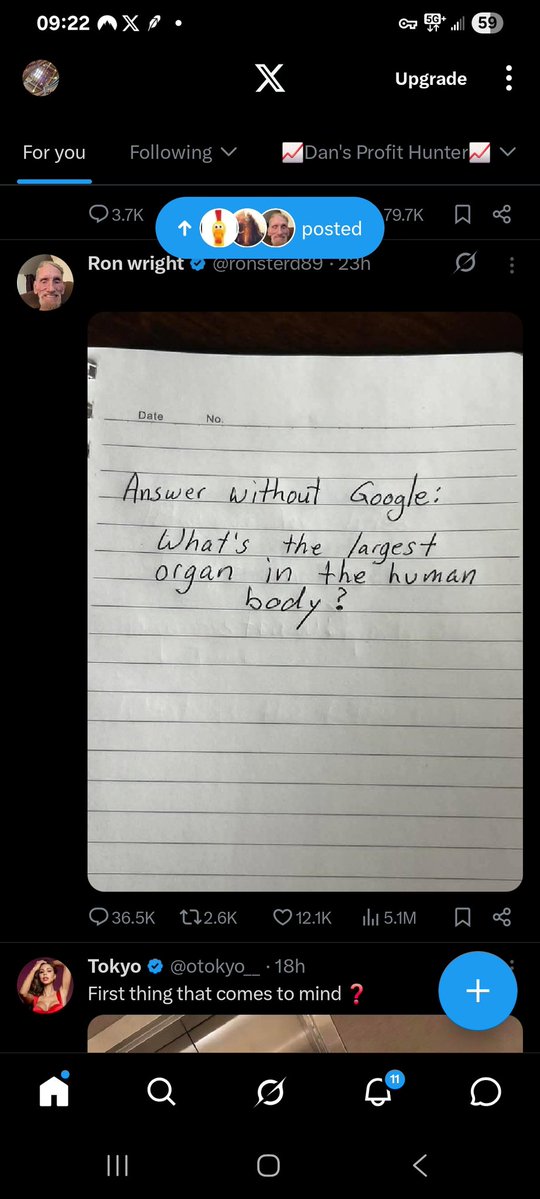 09:22
5G+
59
Upgrade
For you
Following
📈Dan's Profit Hunter📈
3.7K
posted
79.7K
Ron wright @ronsterd89 · 23h
Date No.
Answer without Google:
What's the largest
organ in the human
body?
36.5K 2.6K 12.1K 5.1M
Tokyo @otokyo__ · 18h
First thing that comes to mind ❓
11